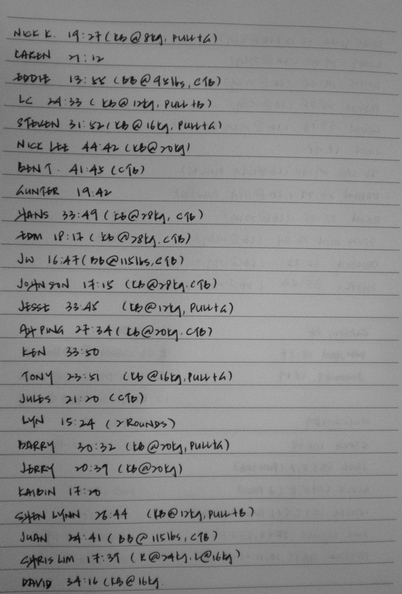 NICK K. 19:27 (KB@8kg, PULL+G)
KAREN 21:12
EDDIE 13:55 (BB@95lbs, CTB)
LC 24:33 (KB@12kg, PULL+B)
STEVEN 31:52 (KB@16kg, PULL+G)
NICK LEE 44:42 (KB@20kg)
BEN T. 41:45 (CTB)
GUNTER 19:42
HANS 33:49 (KB@28kg, CTB)
EDM 18:17 (KB@28kg, CTB)
JW 16:47 (BB@115lbs, CTB)
JOHNSON 17:15 (KB@28kg, CTB)
JESSE 33:45 (KB@12kg, PULL+G)
AH PING 27:34 (KB@20kg, CTB)
KEN 33:50
TONY 23:51 (KB@16kg, PULL+G)
JULES 21:20 (CTB)
LYN 15:24 (2 ROUNDS)
BARRY 30:32 (KB@20kg, PULL+G)
JERRY 20:39 (KB@20kg)
KAIBIN 17:20
SHEN LYNN 26:44 (KB@12kg, PULL+B)
JUAN 24:41 (BB@115lbs, CTB)
CHRIS LIM 17:39 (K@24kg, L@16kg)
DAVID 34:16 (KB@16kg.